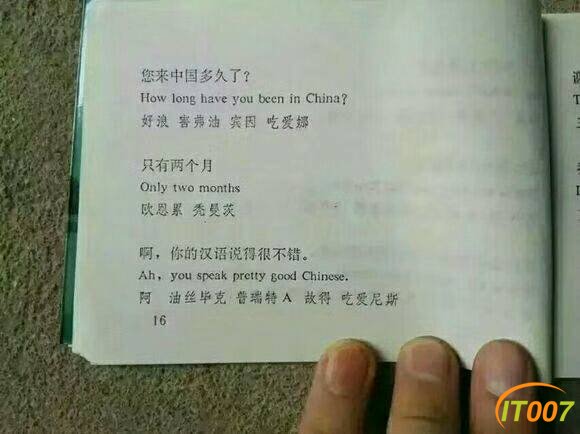 您来中国多久了？
How long have you been in China?
好浪 害弗油 宾因 吃爱娜
只有两个月
Only two months
欧恩累 秃曼茨
啊，你的汉语说得很不错。
Ah, you speak pretty good Chinese.
阿 油丝毕克 普瑞特A 故得 吃爱尼斯
16
IT007